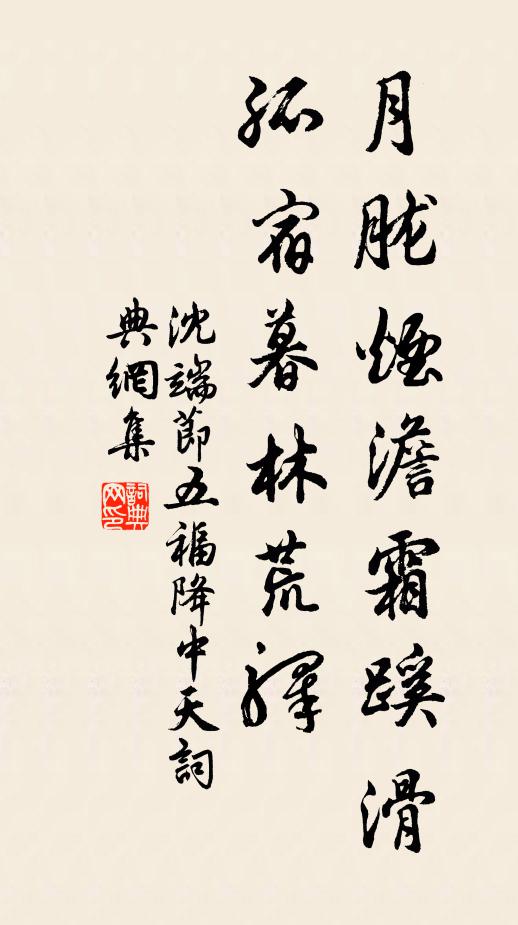 月朧煙澹霜蹊滑
孤宿暮林荒驛
沈端節五福降中天詞
典網集
詞典網印